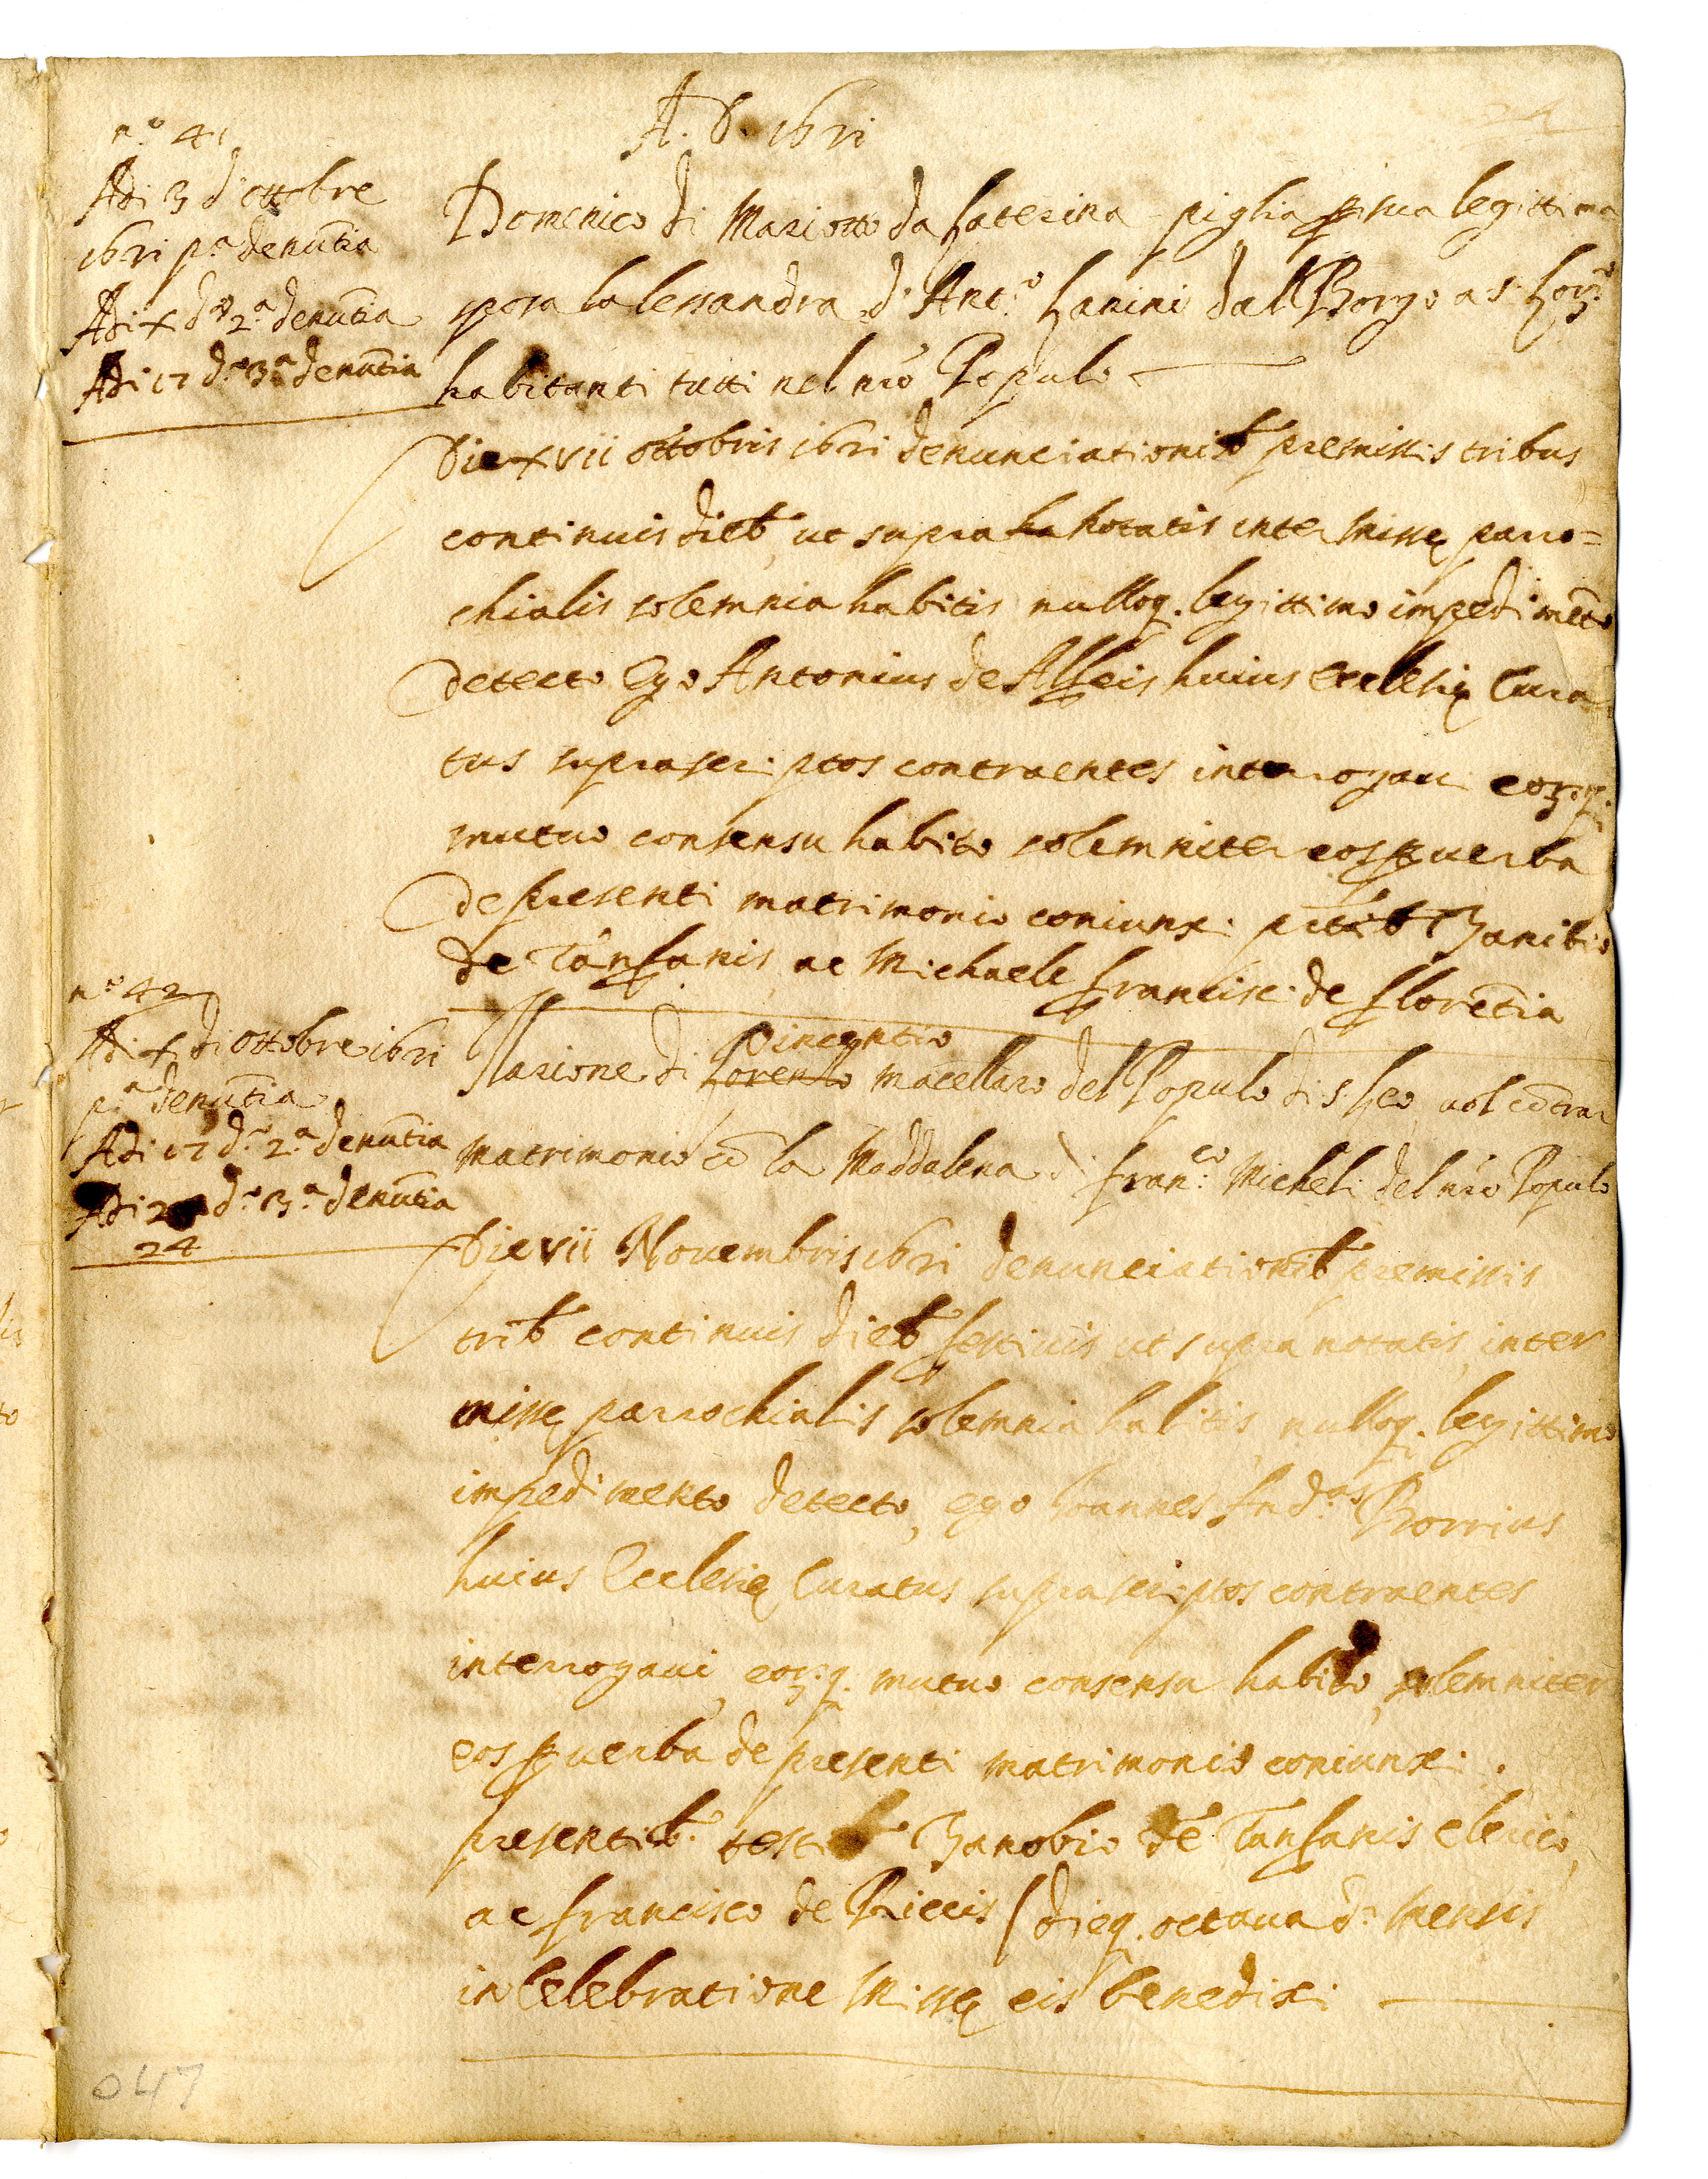 A. D. 1621
24
nº 41
Adi 3 d'ottobre
1621 pª denũtia
Adi x dº 2ª denũtia
Adi 17 dº 3ª denũtia
Domenico di Mariotto da Laterina piglia p sua legittima
sposa la lessandra d'Antº Lanini dall Borgo a S. Lorᶻº
habitanti tutti nel nrõ Populo
Die xvii ottobris 1621 denunciationib premissis tribus
continuis dieb, ut supra ha notatis inter Missę parro=
chialis solemnia habitis nulloq. legittimo impedimẽto
detecto Ego Antonius de Alfeis huius ecclesię Cura
tus suprascriptos contraentes interrogaui eorᶻq.
mutuo consensu habito solemniter eos p uerba
de presenti matrimonio coniunxi
de Tanfanis ac Michaele Francisc. de florẽtia
nº 42
Adi x di ottobre 1621
pª denũtia
Adi 17 dº 2ª denũtia
Adi 2 dº 3ª denũtia
24
Vincentio
Ilarione di Lorenzo macellaro del Populo di S. Leo uol cõtrar
matrimonio cõ la Maddalena di franᶜº Micheli del nrõ Populo
Die vii Nouembris 1621 denunciationib premissis
trib continuis dieb festiuis ut supra notatis, inter
missę parrochialis solemnia habitis, nulloq. legittimo
impedimento detecto, ego Ioannes Andᵃˢ Borrius
huius Ecclesię Curatus suprascriptos contraentes
interrogaui, eorᶻq. mutuo consensu habito, solemniter
eos p uerba de presenti matrimonio coniunxi.
presentib. testib Zanobio de Tanfanis clerico,
ac francisco de Riccis / dieq. octaua dⁱ Mensis
in Celebratione Missę eis benedixi
047